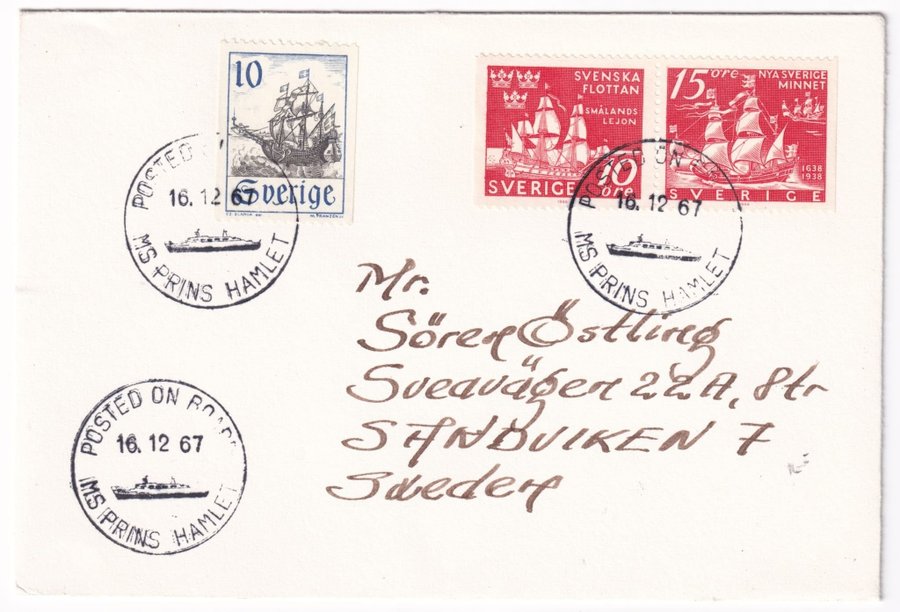 10
Sverige
SVENSKA
FLOTTAN
SMÅLANDS
LEJON
SVERIGE 10
öre
15 öre NYA SVERIGE
MINNET
1638
1938
SVERIGE
POSTED ON
16.12 67
MS PRINS HAMLET
POSTED ON
16.12 67
MS PRINS HAMLET
Mr.
Sören Östling
Sveavägen 22A, 8tr
SANDVIKEN 7
Sweden
POSTED ON BOARD
16.12 67
MS PRINS HAMLET